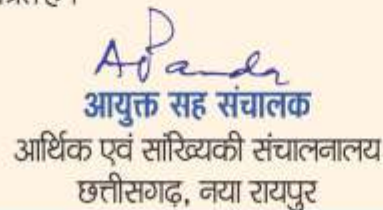 A Panda
आयुक्त सह संचालक
आर्थिक एवं सांख्यिकी संचालनालय
छत्तीसगढ़, नया रायपुर